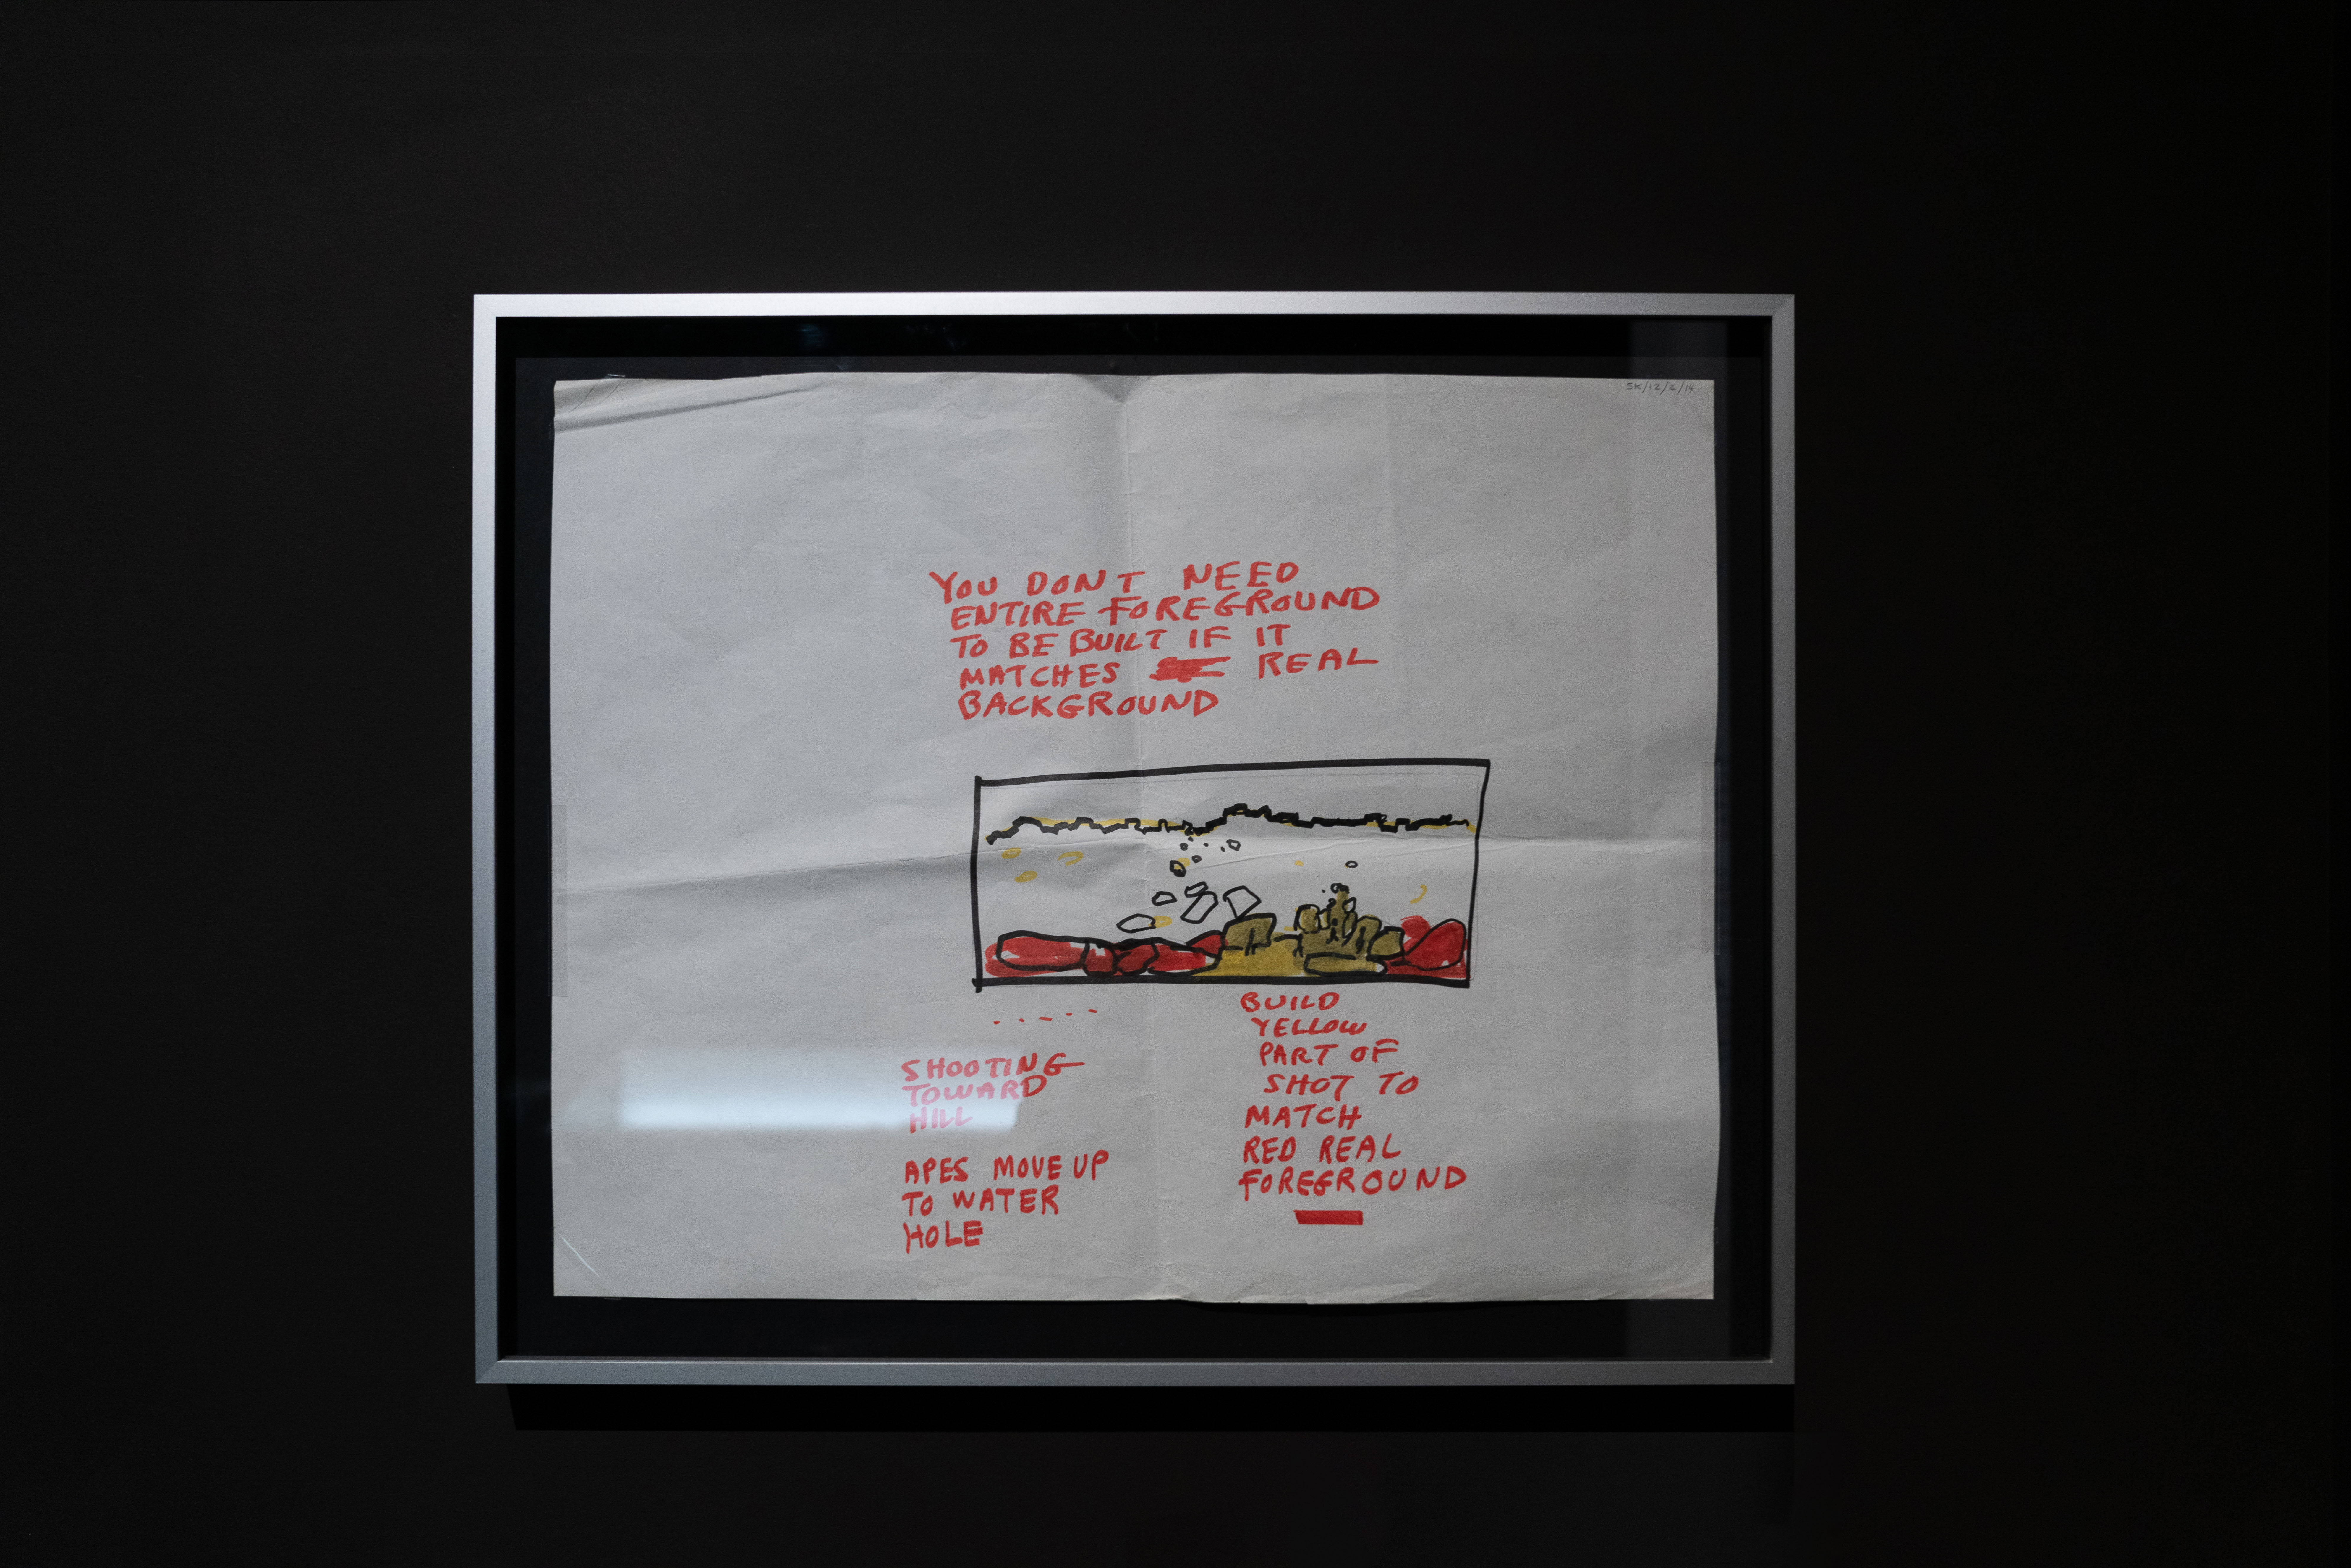 SK/12/2/14
YOU DON'T NEED
ENTIRE FOREGROUND
TO BE BUILT IF IT
MATCHES REAL
BACKGROUND
SHOOTING
TOWARD
HILL
APES MOVE UP
TO WATER
HOLE
BUILD
YELLOW
PART OF
SHOT TO
MATCH
RED REAL
FOREGROUND